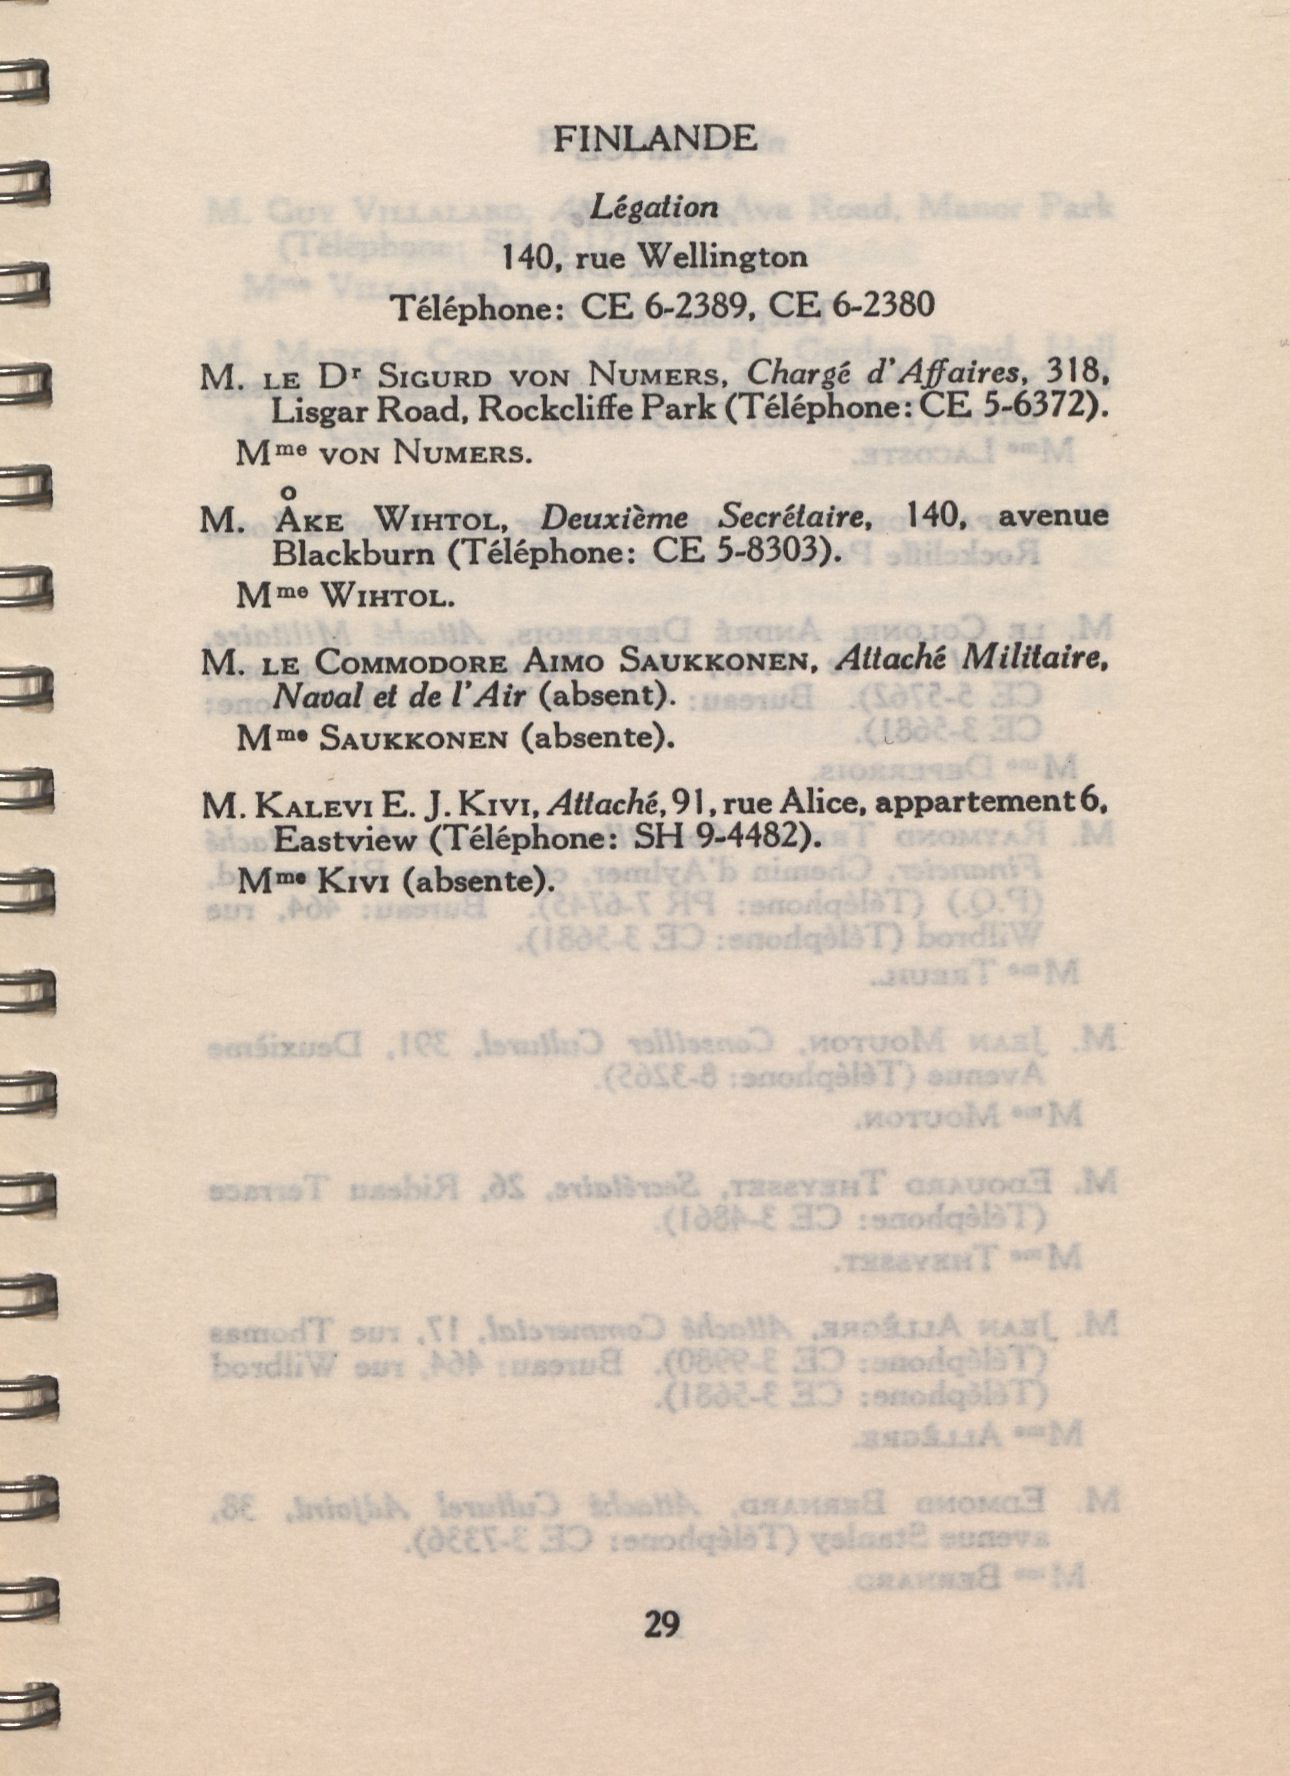 FINLANDE
Légation
140, rue Wellington
Téléphone: CE 6-2389, CE 6-2380
M. LE Dr SIGURD VON NUMERS, Chargé d'Affaires, 318,
Lisgar Road, Rockcliffe Park (Téléphone: CE 5-6372).
Mme VON NUMERS.
M. ÅKE WIHTOL, Deuxième Secrétaire, 140, avenue
Blackburn (Téléphone: CE 5-8303).
Mme WIHTOL.
M. LE COMMODORE AIMO SAUKKONEN, Attaché Militaire,
Naval et de l'Air (absent).
Mme SAUKKONEN (absente).
M. KALEVI E. J. KIVI, Attaché, 91, rue Alice, appartement 6,
Eastview (Téléphone: SH 9-4482).
Mme KIVI (absente).
29